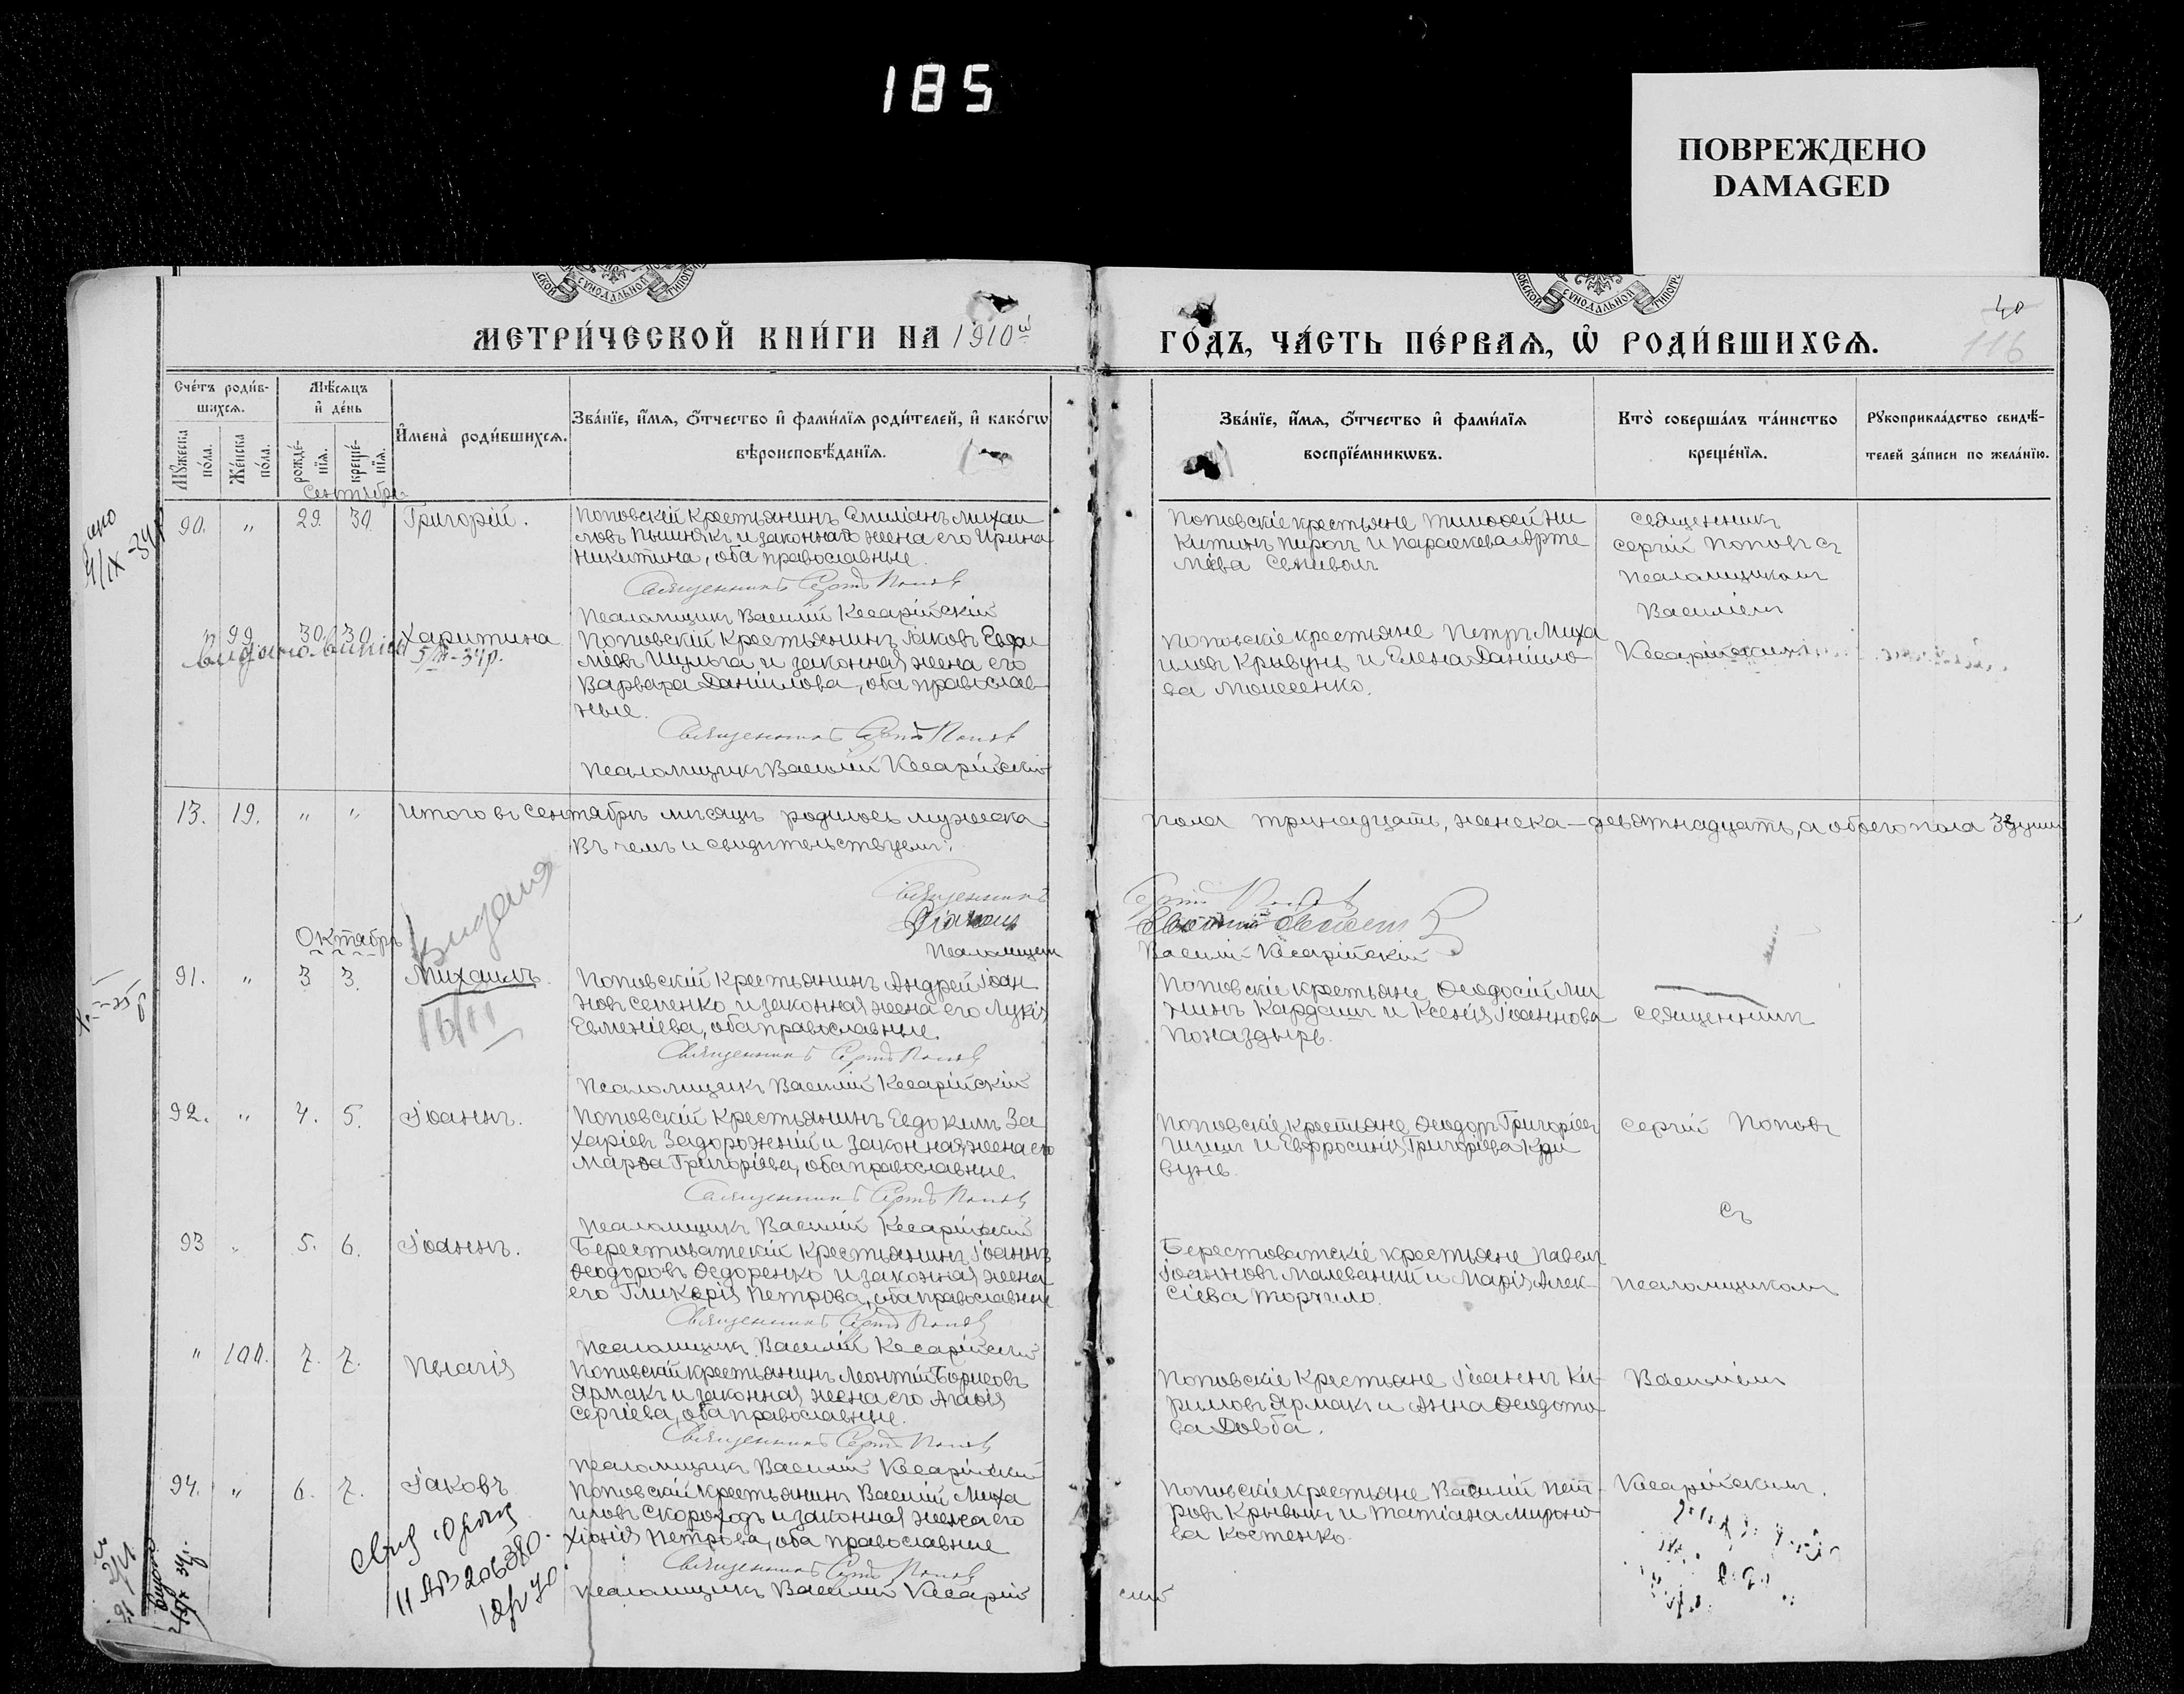 185
ПОВРЕЖДЕНО
DAMAGED
МЕТРИ́ЧЕСКОЙ КНИ́ГИ НА 1910й
ГО́ДЪ, ЧА́СТЬ ПЕ́РВАѦ, Ѡ҆ РОДИ́ВШИХСѦ.
40
116
Сче́тъ роди́в-
шихсѧ.
Мꙋ́жеска по́ла.
Же́нска по́ла.
Мѣ́сѧцъ
и҆ де́нь
рожде́-
нїѧ.
креще́-
нїѧ.
И҆мена̀ роди́вшихсѧ.
Зва́нїе, и҆́мѧ, ѻ҆́тчество и҆ фами́лїѧ роди́телей, и҆ како́гѡ
вѣроисповѣ́данїѧ.
Зва́нїе, и҆́мѧ, ѻ҆́тчество и҆ фами́лїѧ
воспрїе́мникѡвъ.
Кто̀ соверша́лъ та́инство
креще́нїѧ.
Рꙋкоприкла́дство свидѣ́-
телей за́писи по жела́нїю.
Сентябрь
90. " 29. 30. Григорій.
Поповскій крестьянинъ Емиліанъ Михаи
ловъ Пышнякъ и законная жена его Ирина
Никитина, оба православные.
Священникъ Сергій Поповъ
Псаломщикъ Василій Кесарійскій
Поповскіе крестьяне Тимофей Ни
китинъ Пирогъ и Параскева Арте
міева
Священникъ
Сергій Поповъ съ
псаломщикомъ
Василіемъ
Кесарійскимъ
" 99 30. 30. Харитина
видано виписъ
34р.
Поповскій крестьянинъ Іаковъ Евфи
міевъ Шульга и законная жена его
Варвара Даніилова, оба православ-
ные.
Священникъ Сергій Поповъ
Псаломщикъ Василій Кесарійскій
Поповскіе крестьяне Петръ Миха
иловъ Кривунъ и Елена Даніило-
ва Моисеенко.
13. 19. " " Итого въ Сентябрѣ мѣсяцѣ родилось мужеска
пола тринадцать, женска – девятнадцать, а обоего пола 32 души
Въ чемъ и свидѣтельствуемъ:
Священникъ Сергій Поповъ
Діаконъ
Псаломщикъ Василій Кесарійскій
Октябрь
видана
91. " 3 3. Михаилъ.
Поповскій крестьянинъ Андрей Іоан
новъ Сепенко и законная жена его Лукія
Евменіева, оба православные.
Священникъ Сергій Поповъ
Псаломщикъ Василій Кесарійскій
Поповскіе крестьяне Ѳеодосій Ми
нинъ Кардашъ и Ксенія Іоаннова
Поназдырь.
Священникъ
92. " 4. 5. Іоаннъ.
Поповскій крестьянинъ Евдокимъ За
харіевъ Задорожній и законная жена его
Марѳа Григоріева, оба православные.
Священникъ Сергій Поповъ
Псаломщикъ Василій Кесарійскій
Поповскіе крестьяне Ѳеодоръ Григоріевъ
Шишъ и Евфросинія Григоріева Кри
вунь.
Сергій Поповъ
93 " 5. 6. Іоаннъ.
Берестоватскій крестьянинъ Іоаннъ
Ѳеодоровъ Ѳедоренко и законная жена
его Гликерія Петрова, оба православные
Священникъ Сергій Поповъ
Псаломщикъ Василій Кесарійскій
Берестоватскіе крестьяне Павелъ
Іоанновъ Малеванній и Марія Алек-
сіева Торчило.
съ
псаломщикомъ
" 100. 7. 7. Пелагія
Поповскій крестьянинъ Леонтій Борисовъ
Ярмакъ и законная жена его Агафія
Сергіева, оба православные.
Священникъ Сергій Поповъ
Псаломщикъ Василій Кесарійскій
Поповскіе крестьяне Іоаннъ Ки-
рилловъ Ярмакъ и Анна Ѳеодото-
ва Довба.
Василіемъ
94. " 6. 7. Іаковъ
Поповскій крестьянинъ Василій Миха
иловъ Скороходъ и законная жена его
Хіонія Петрова, оба православные
Священникъ Сергій Поповъ
Псаломщикъ Василій Кесарій
скій
Поповскіе крестьяне Василій Пет-
ровъ Крывыи и Татіана Мироно-
ва Костенко.
Кесарійскимъ.
II АВ 206380.